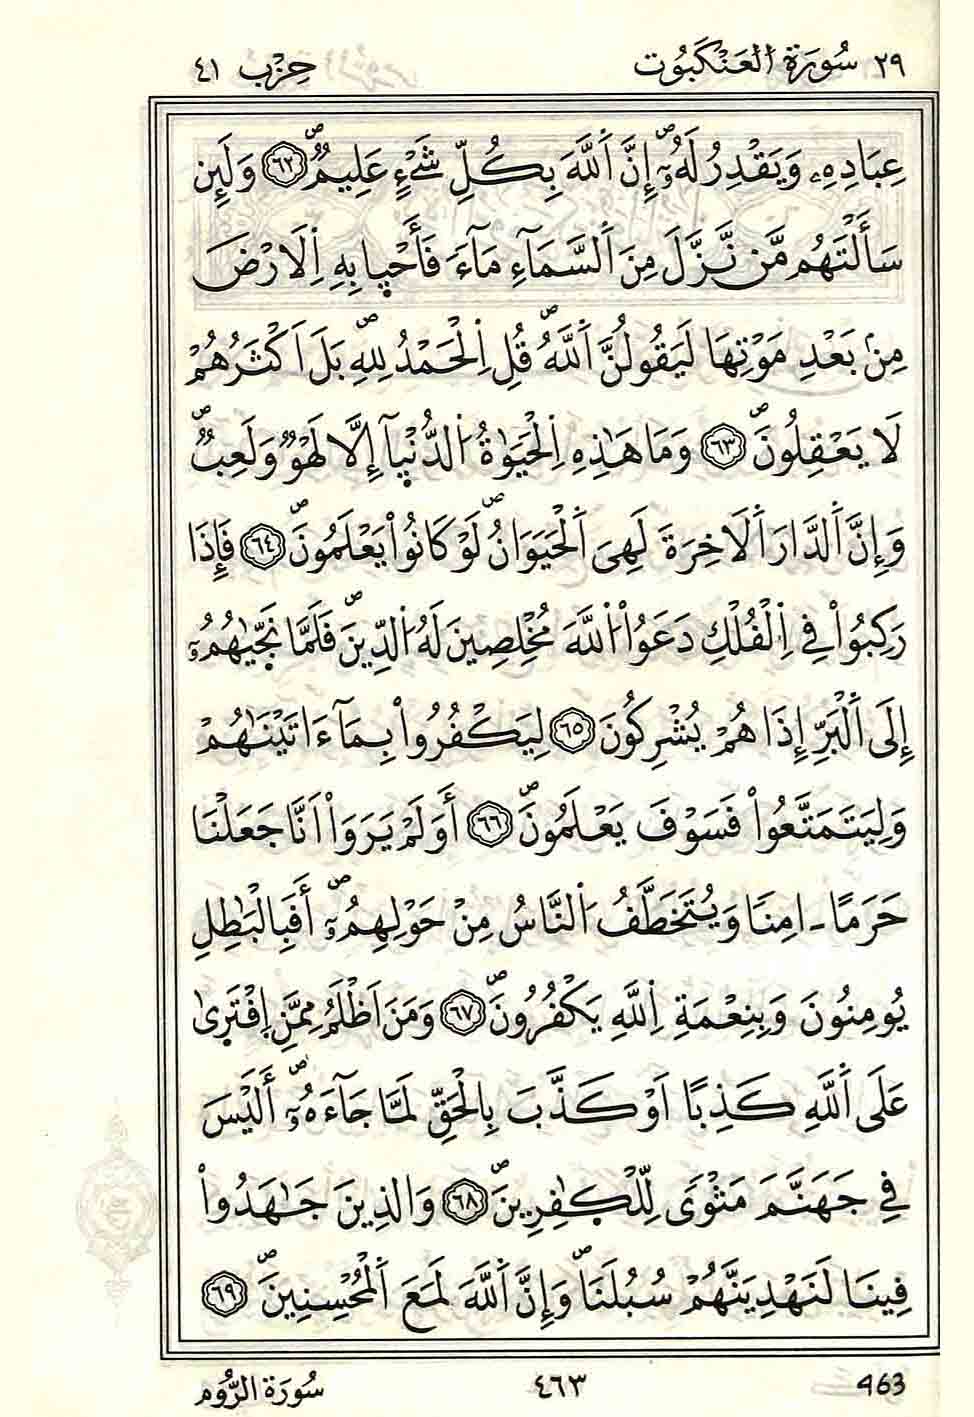 ٢٩ سُورَةُ الْعَنْكَبُوت حِزْب ٤١
عِبَادِهِۦ وَيَقْدِرُ لَهُۥٓۖ إِنَّ اَ۬للَّهَ بِكُلِّ شَےْءٍ عَلِيمٞۖ ٦٢ وَلَئِن
سَأَلْتَهُم مَّن نَّزَّلَ مِنَ اَ۬لسَّمَآءِ مَآءٗ فَأَحْي۪ا بِهِ اِ۬لَارْضَ
مِنۢ بَعْدِ مَوْتِهَا لَيَقُولُنَّ اَ۬للَّهُۖ قُلِ اِ۬لْحَمْدُ لِلهِۖ بَلَ اَكْثَرُهُمْ
لَا يَعْقِلُونَۖ ٦٣ وَمَا هَٰذِهِ اِ۬لْحَيَوٰةُ اُ۬لدُّنْي۪آ إِلَّا لَهْوٞ وَلَعِبٞۖ
وَإِنَّ اَ۬لدَّارَ اَ۬لَاخِرَةَ لَهِيَ اَ۬لْحَيَوَانُۖ لَوْ كَانُواْ يَعْلَمُونَۖ ٦٤ فَإِذَا
رَكِبُواْ فِے اِ۬لْفُلْكِ دَعَوُاْ اُ۬للَّهَ مُخْلِصِينَ لَهُ اُ۬لدِّينَۖ فَلَمَّا نَجّ۪يٰهُمُۥٓ
إِلَى اَ۬لْبَرِّ إِذَا هُمْ يُشْرِكُونَ ٦٥ لِيَكْفُرُواْ بِمَآ ءَاتَيْنَٰهُمْ
وَلِيَتَمَتَّعُواْ فَسَوْفَ يَعْلَمُونَۖ ٦٦ أَوَلَمْ يَرَوَاْ اَنَّا جَعَلْنَا
حَرَماً ـ اٰمِناٗ وَيُتَخَطَّفُ اُ۬لنَّاسُ مِنْ حَوْلِهِمُۥٓۖ أَفَبِالْبَٰطِلِ
يُومِنُونَ وَبِنِعْمَةِ اِ۬للَّهِ يَكْفُرُونَۖ ٦٧ وَمَنَ اَظْلَمُ مِمَّنِ اِ۪فْتَر۪يٰ
عَلَى اَ۬للَّهِ كَذِباً اَوْ كَذَّبَ بِالْحَقِّ لَمَّا جَآءَهُۥٓۖ أَلَيْسَ
فِے جَهَنَّمَ مَثْوىٗ لِّلْكٰ۪فِرِينَۖ ٦٨ وَالذِينَ جَٰهَدُواْ
فِينَا لَنَهْدِيَنَّهُمْ سُبُلَنَاۖ وَإِنَّ اَ۬للَّهَ لَمَعَ اَ۬لْمُحْسِنِينَۖ ٦٩
463 ٤٦٣ سُورَةُ الرُّوم